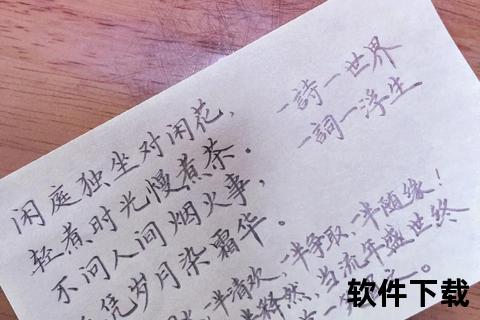 闲庭独坐对闲花，
轻煮时光慢煮茶。
不问人间烟火事，
凭岁月染霜华。
一詩一世界
一詞一浮生
一半清欢，一半争取，一半随缘！
释然，当流年盛世终
软件下载